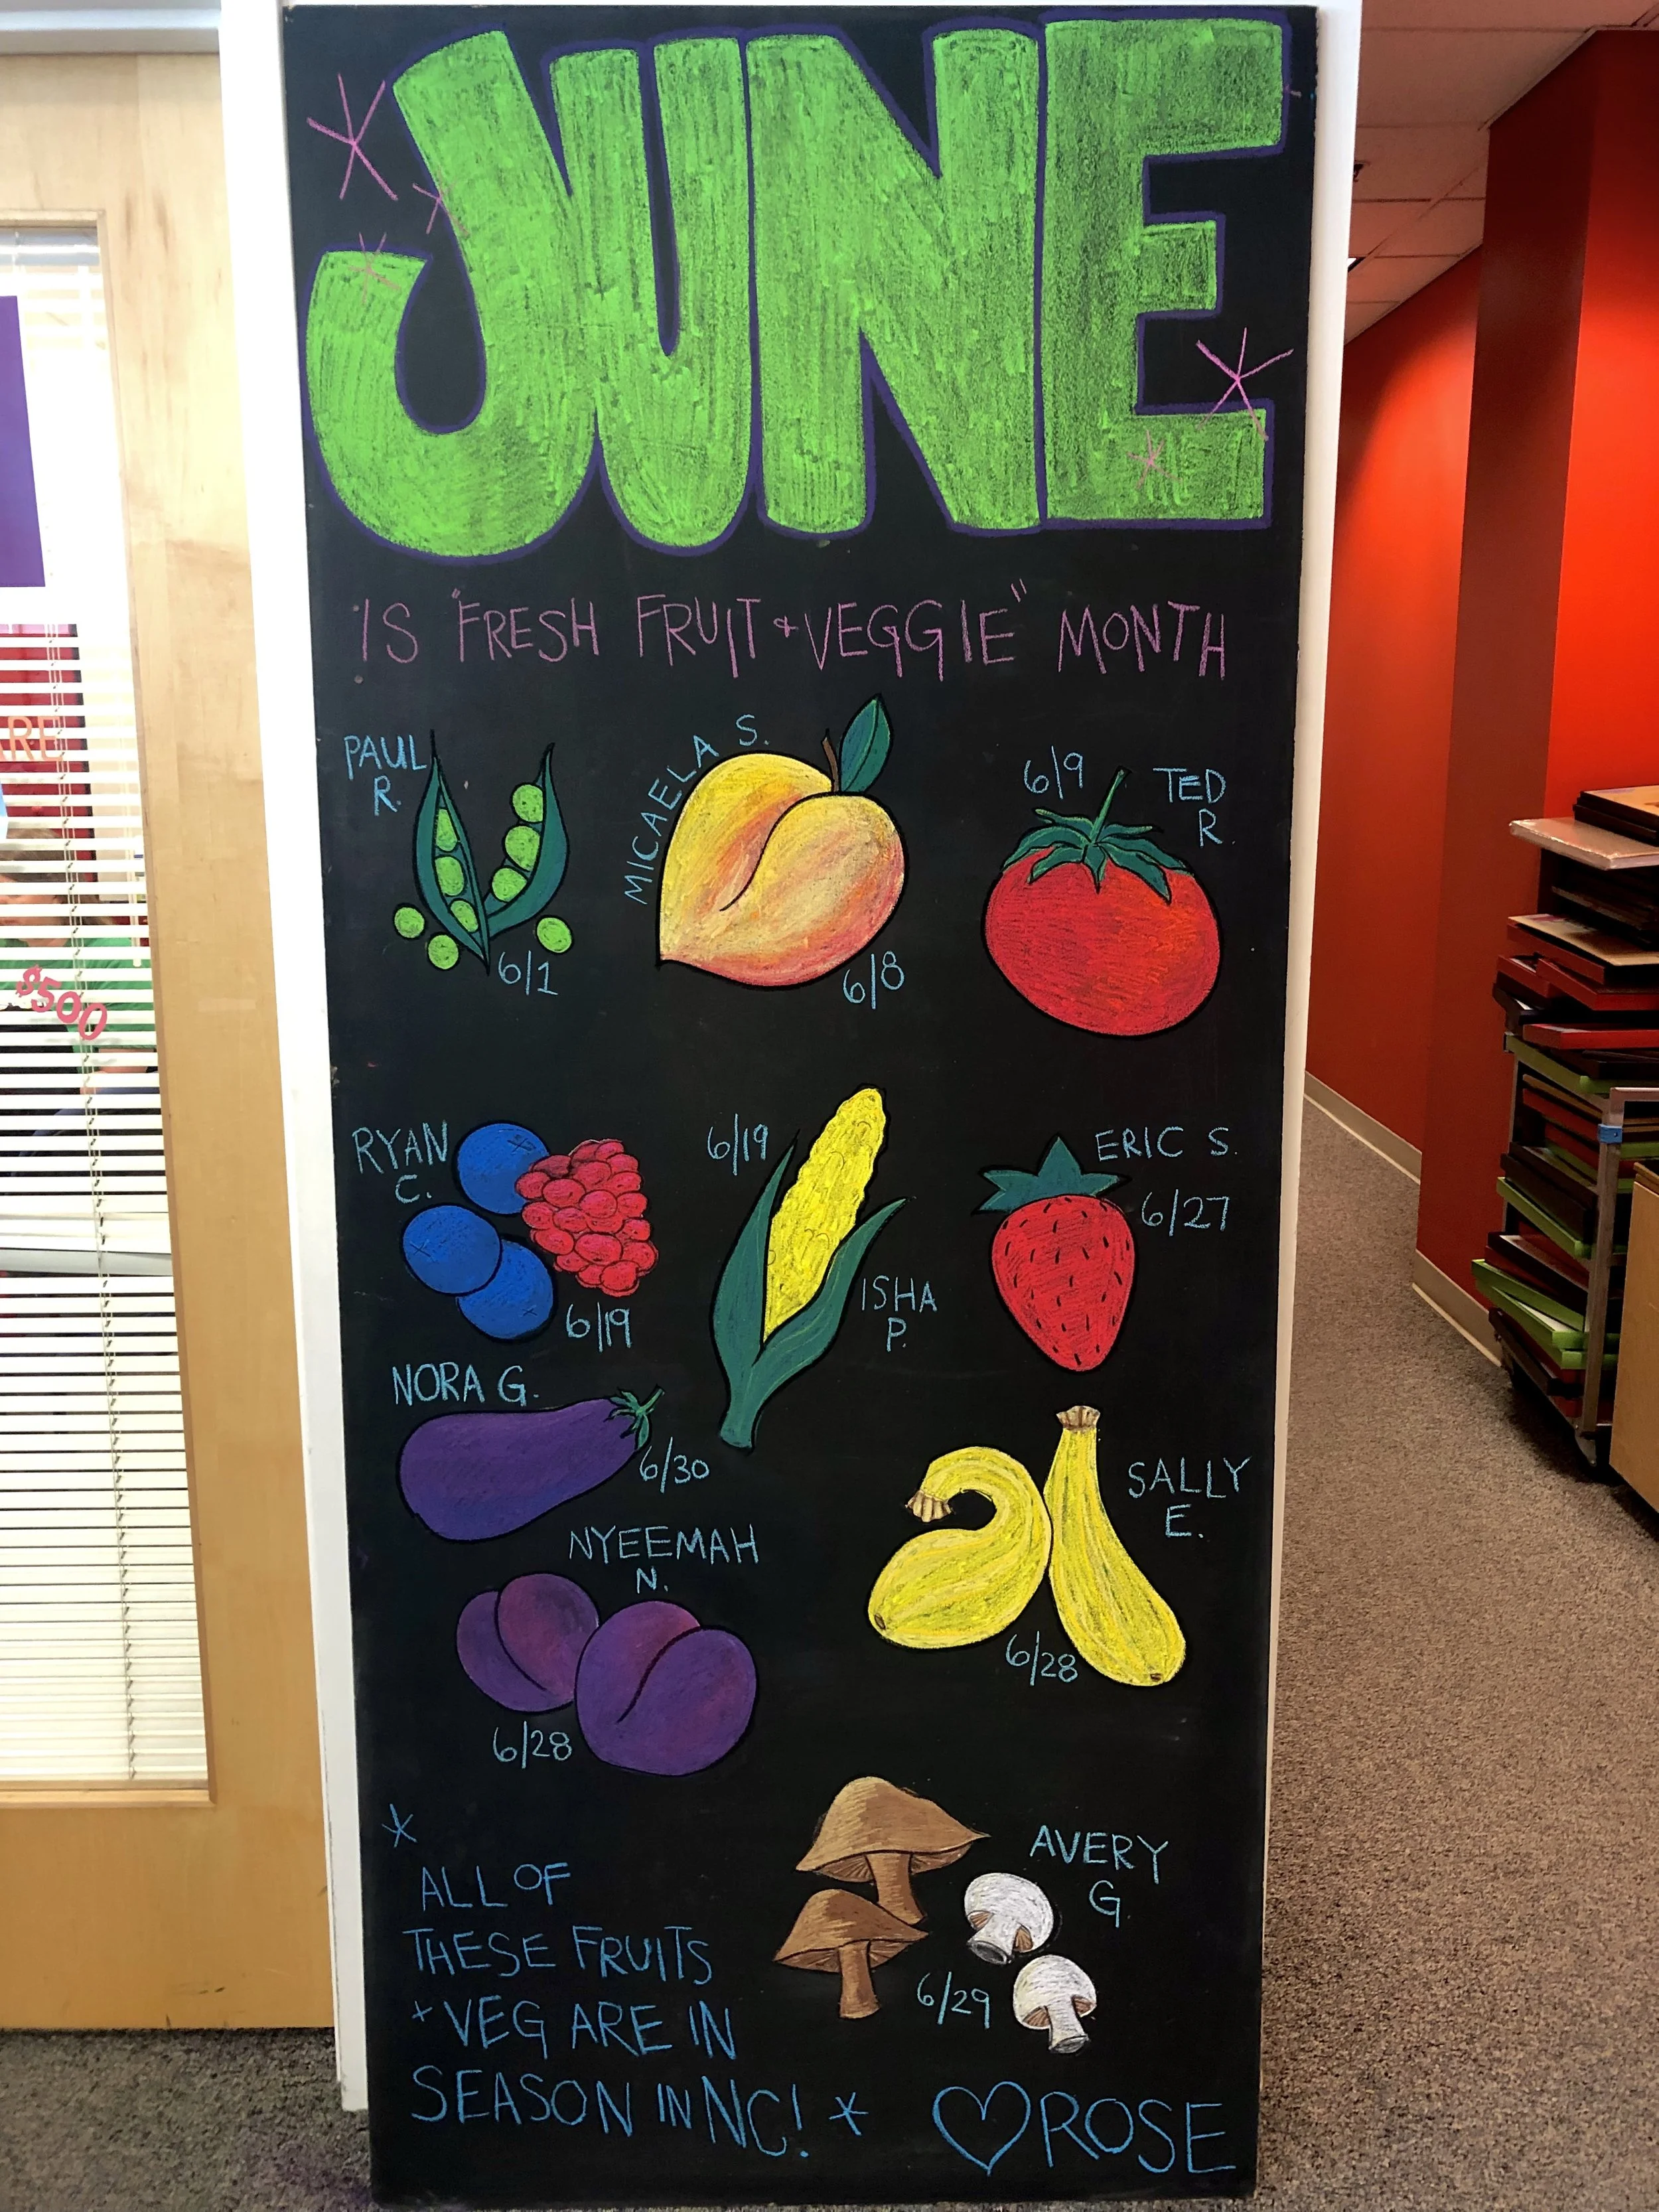 JUNE
IS "FRESH FRUIT + VEGGIE" MONTH
PAUL
R.
6/1
MICAELA S.
6/8
6/9
TED
R.
RYAN
C.
6/19
6/19
ISHA
P.
ERIC S.
6/27
NORA G.
6/30
SALLY
E.
6/28
NYEEMAH
N.
6/28
AVERY
G.
6/29
*
ALL OF
THESE FRUITS
+ VEG ARE IN
SEASON IN NC! *
♡ ROSE
ARE
$500